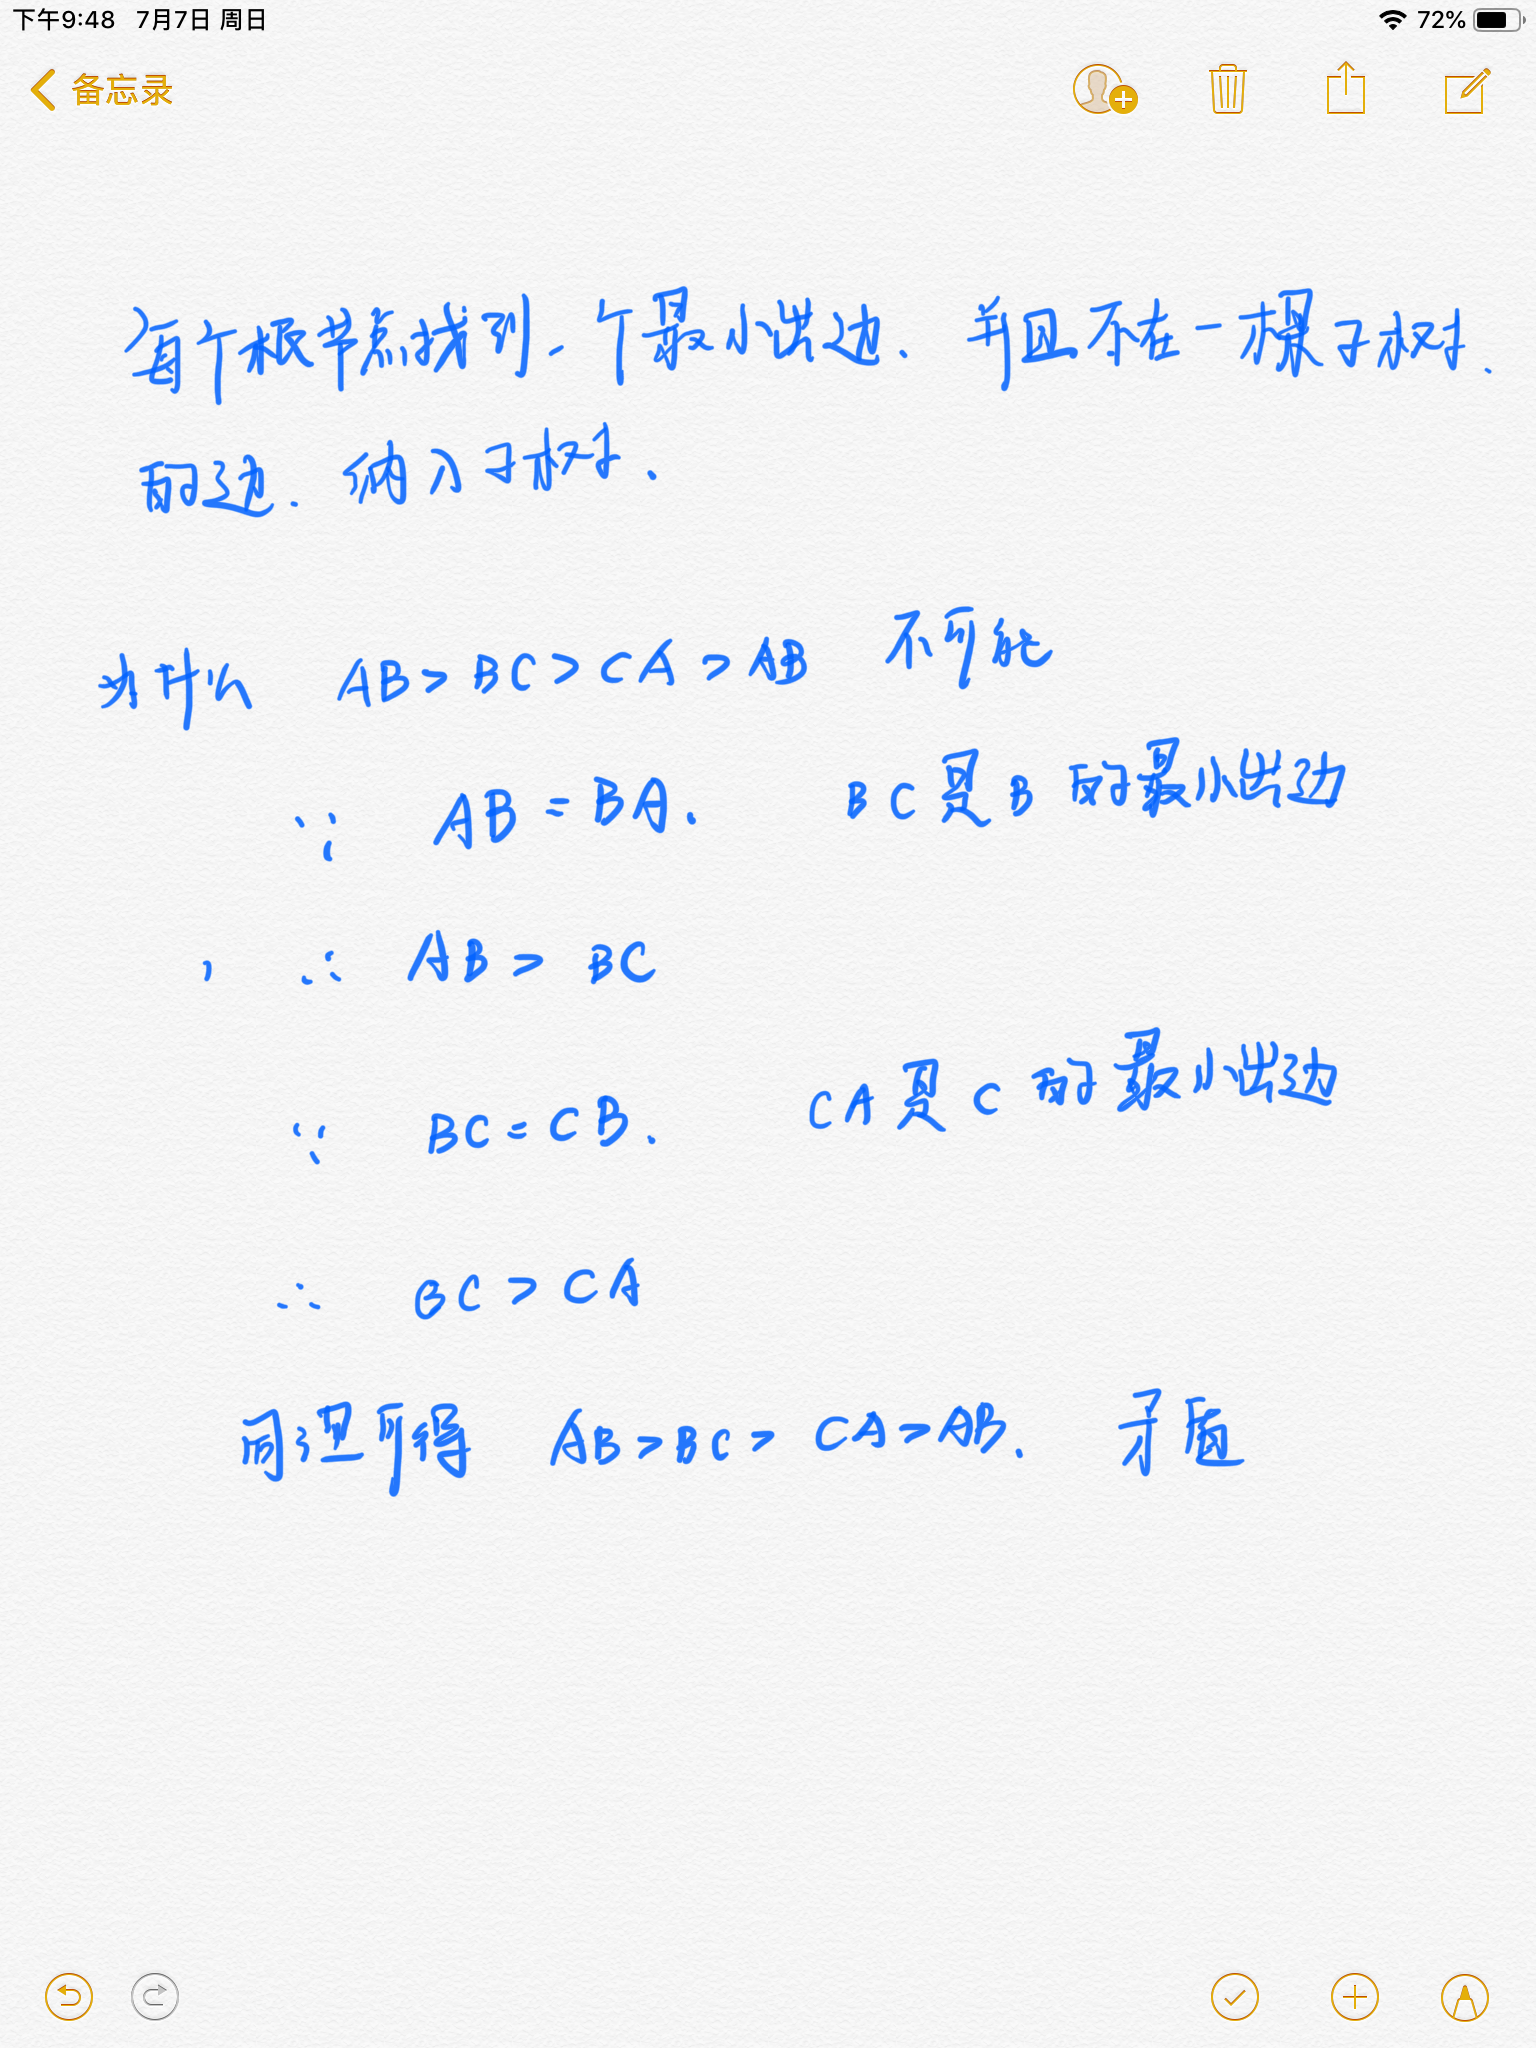 下午9:48 7月7日 周日 72%
备忘录
每个根节点找到一个最小出边. 并且不在一棵子树.
的边. 纳入子树.
为什么 AB > BC > CA > AB 不可能
∵ AB = BA. BC是B的最小出边
, ∴ AB > BC
∵ BC = CB. CA是C的最小出边
∴ BC > CA
同理可得 AB > BC > CA > AB. 矛盾